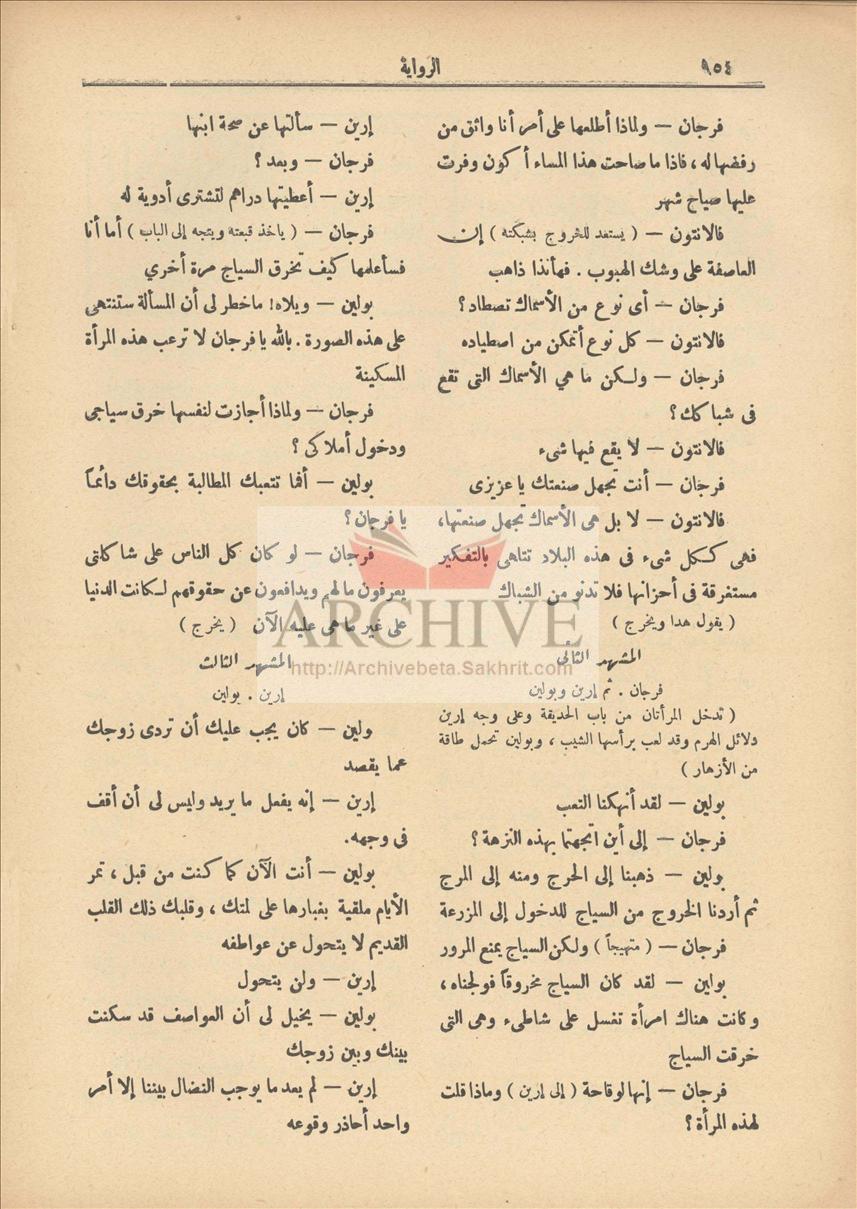 ٩٥٤
الرواية
فرجان — ولماذا أطلعها على أمر أنا واثق من
رفضها له ، فاذا ما صاحت هذا المساء أكون وفرت
عليها صياح شهر
فالانتون — ( يستعد للخروج بشبكته ) إن
العاصفة على وشك الهبوب . فهأنذا ذاهب
فرجان — أى نوع من الأسماك تصطاد ؟
فالانتون — كل نوع أتمكن من اصطياده
فرجان — ولكن ما هي الأسماك التى تقع
فى شباكك ؟
فالانتون — لا يقع فيها شىء
فرجان — أنت تجهل صنعتك يا عزيزى
فالانتون — لا بل هى الأسماك تجهل صنعتها،
فهى ككل شىء فى هذه البلاد تتلهى بالتفكير
مستغرقة فى أحزانها فلا تدنو من الشباك
( يقول هدا ويخرج )
المشهد الثانى
فرجان . ثم إرين وبولين
( تدخل المرأتان من باب الحديقة وعلى وجه إرين
دلائل الهرم وقد لعب برأسها الشيب ، وبولين تحمل طاقة
من الأزهار )
بولين — لقد أنهكنا التعب
فرجان — إلى أين اتجهتما بهذه النزهة ؟
بولين — ذهبنا إلى الحرج ومنه إلى المرج
ثم أردنا الخروج من السياج للدخول إلى المزرعة
فرجان — ( متهيجاً ) ولكن السياج يمنع المرور
بولين — لقد كان السياج مخروقاً فولجناه ،
وكانت هناك امرأة تغسل على شاطىء وهى التى
خرقت السياج
فرجان — إنها لوقاحة ( إلى إرين ) وماذا قلت
لهذه المرأة ؟
إرين — سألتها عن صحة ابنها
فرجان — وبعد ؟
إرين — أعطيتها دراهم لتشترى أدوية له
فرجان — ( ياخذ قبعته ويتجه إلى الباب ) أما أنا
فسأعلمها كيف تخرق السياج مرة أخري
بولين — ويلاه! ماخطر لى أن المسألة ستنتهى
على هذه الصورة . بالله يا فرجان لا ترعب هذه المرأة
المسكينة
فرجان — ولماذا أجازت لنفسها خرق سياجى
ودخول أملاكى ؟
بولين — أفما تتعبك المطالبة بحقوقك دائماً
يا فرجان ؟
فرجان — لو كان كل الناس على شاكلتى
يعرفون مالهم ويدافعون عن حقوقهم لكانت الدنيا
على غير ما هى عليه الآن ( يخرج )
المشهد الثالث
إرين . بولين
ولين — كان يجب عليك أن تردى زوجك
عما يقصد
إرين — إنه يفعل ما يريد وليس لى أن أقف
فى وجهه.
بولين — أنت الآن كما كنت من قبل ، تمر
الأيام ملقية بغبارها على لمتك ، وقلبك ذلك القلب
القديم لا يتحول عن عواطفه
إرين — ولن يتحول
بولين — يخيل لى أن العواصف قد سكنت
بينك وبين زوجك
إرين — لم يعد ما يوجب النضال بيننا إلا أمر
واحد أحاذر وقوعه
ARCHIVE
http://Archivebeta.Sakhrit.com